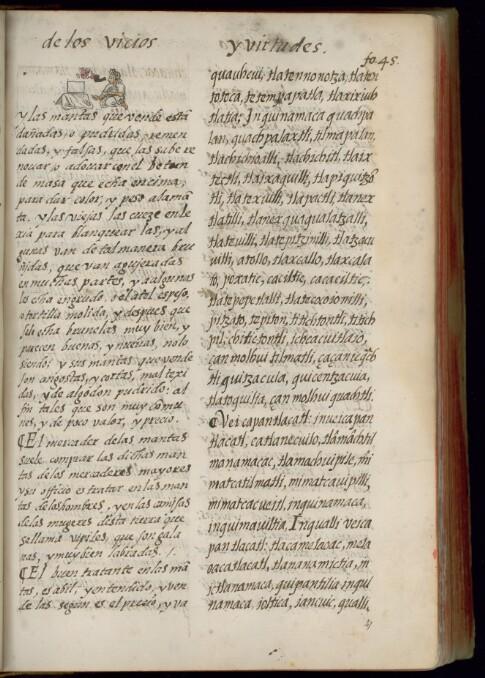 de los vicios
y virtudes.
fo. 45.
y las mantas que vende está
dañadas, o podridas, remen
dadas, y falsas, que las sube re
nouar, o adouar con el betun
de masa que echa encima,
para dar color, y peso a la mã
ta. y las viejas las cueze en le
xia para blanquear las, y al
gunas van de tal manera bru
ñidas, que van agujeradas
en muchas partes, y a algunas
les echa ingrudo. o el atol espeso,
o tortilla molida, y despues que
son angostas, y cortas, mal texi
das, y de algodon pudrido: al
fin tales que son muy comu
nes, y de poco valor, y precio.
¶ El mercader de las mantas
suele comprar las dichas man
tas de los mercaderes mayores
y su officio es tratar en las man
tas de los hombres, y en las camisas
de las mugeres desta tierra que
se llamã vipiles, que son gala
nas, y muy bien labradas. /.
¶ El buen tratante en las mã
tas, es abil, y entendido, y ven
de las segun es el precio, y va
quauhcui, tlatennonotza,
toteca, tetempapatla,
tlatia; Inquinamaca quachpa
lan, quachpalaxtli, tilmapalan,
tlachichioalli, tlachichitl,
tectli, tlaixaquilli,
tli, tlatexuilli, tlapactli, tlanex
tlatilli, tlanexquaqualatzalli,
tlatzuilli, tlatepitzinilli, tlatzacu
uilli, atollo, tlaxcallo, tlaxcala
to, poxatic, caciltic, cacaciltic:
tlatepepetlalli,
pitzato, tepiton, titichtontli, titich
pil, chitictontli, icheacuitlaio,
çan molhui tilmatli,
tli quitzacuia, quicentzacuia,
tlatoquilia, çan molhui quachtli.
¶ Vei capan tlacatl: in veica pan
tlacatl, ca tlanecuilo, tlamãchtil
manamacac, tlamachuipile, mi
matcatilmatli, mimatcavipilli,
mimatcacueitl, inquinamaca,
inquimauiltia, In qualli veica
pan tlacatl: tlacamelaoac, mela
oacatlacatl, tlanamictia,
tlanamaca, quipantilia in qui
namaca, ioltica, iancuic, qualli,